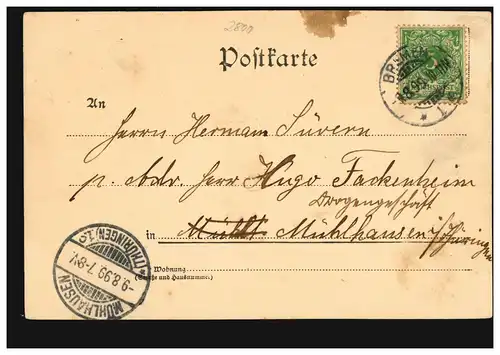 2800
Postkarte
BREMEN
An
Herrn Hermann Süvern
p. Adr. Herr Hugo Fackenheim
Drogengeschäft
in Mühlhausen i/Thüringen
Wohnung
(Straße und Hausnummer)
MÜHLHAUSEN
(THÜRINGEN) 1.c.
-9.8.99.7-8V.